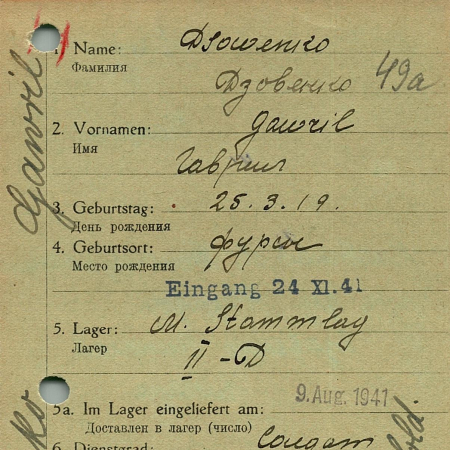 1. Name: Dsowenko
Фамилия Дзовенко 49a
2. Vornamen: Gawril
Имя Гавриил
3. Geburtstag: 25.3.19.
День рождения
4. Geburtsort: Фурсы
Место рождения
Eingang 24 XI. 41
5. Lager: M. Stammlag
Лагер II-D
9. Aug. 1941
5a. Im Lager eingeliefert am:
Доставлен в лагер (число)
6. Dienstgrad: Солдат
Gawril
ko